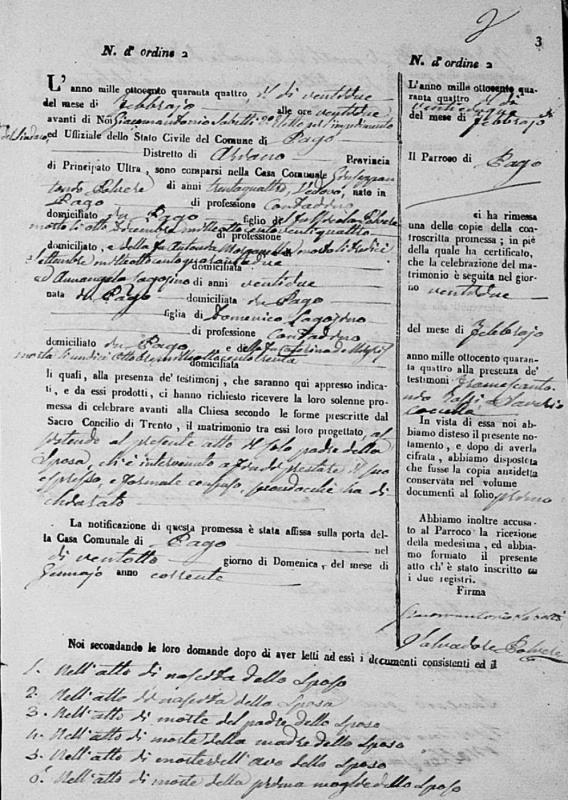 3
N. d'ordine 2
L'anno mille ottocento quaranta quattro, il dì ventidue
del mese di Febbrajo alle ore ventidue
avanti di Noi Giacomantonio
del Sindaco,
ed Uffiziale dello Stato Civile del Comune di Pago
Distretto di Provincia
di Principato Ultra, sono comparsi nella Casa Comunale
di anni trentaquattro, Vedovo, nato in
Pago di professione Contadino
domiciliato in Pago figlio del
morto li otto Decembre milleottocentoventiquattro di professione
domiciliato, e della fu Antonia morta li tredici
Settembre milleottocentoquarantadue domiciliata
ed Annangela Lagozino di anni ventidue
nata in Pago domiciliata in Pago
figlia di Domenico Lagozino
di professione Contadino
domiciliato in Pago e della fu Caterina
morta li undici Ottobre milleottocentotrenta domiciliata
li quali, alla presenza de' testimonj, che saranno quì appresso indica-
ti, e da essi prodotti, ci hanno richiesto ricevere la loro solenne pro-
messa di celebrare avanti alla Chiesa secondo le forme prescritte dal
Sacro Concilio di Trento, il matrimonio tra essi loro progettato, as
sistendo al presente atto il solo padre della
Sposa, ch'è intervenuto a fin di prestare il suo
espresso, e formale consenso, secondocchè ha di
chiarato
La notificazione di questa promessa è stata affissa sulla porta del-
la Casa Comunale di Pago nel
dì ventotto giorno di Domenica, del mese di
Gennajo anno corrente
Noi secondando le loro domande dopo di aver letti ad essi i documenti consistenti ed il
1. Nell'atto di nascita dello Sposo
2. Nell'atto di nascita della Sposa
3. Nell'atto di morte del padre dello Sposo
4. Nell'atto di morte della madre dello Sposo
5. Nell'atto di morte dell'avo dello Sposo
6. Nell'atto di morte della prima moglie dello Sposo
N. d'ordine 2
L'anno mille ottocento qua-
ranta quattro il dì
ventidue
del mese di Febbrajo
Il Parroco di
Pago
ci ha rimessa
una delle copie della con-
troscritta promessa; in piè
della quale ha certificato,
che la celebrazione del ma-
trimonio è seguita nel gior-
no ventidue
del mese di Febbrajo
anno mille ottocento quaran-
ta quattro alla presenza de'
testimonj Francescanto
nio
In vista di essa noi ab-
biamo disteso il presente no-
tamento, e dopo di averla
cifrata, abbiamo disposto
che fusse la copia anzidetta
conservata nel volume
documenti al folio primo
Abbiamo inoltre accusa-
to al Parroco la ricezione
della medesima, ed abbia-
mo formato il presente
atto ch'è stato inscritto su
i due registri.
Firma
Giacomantonio
Salvadore Polvere